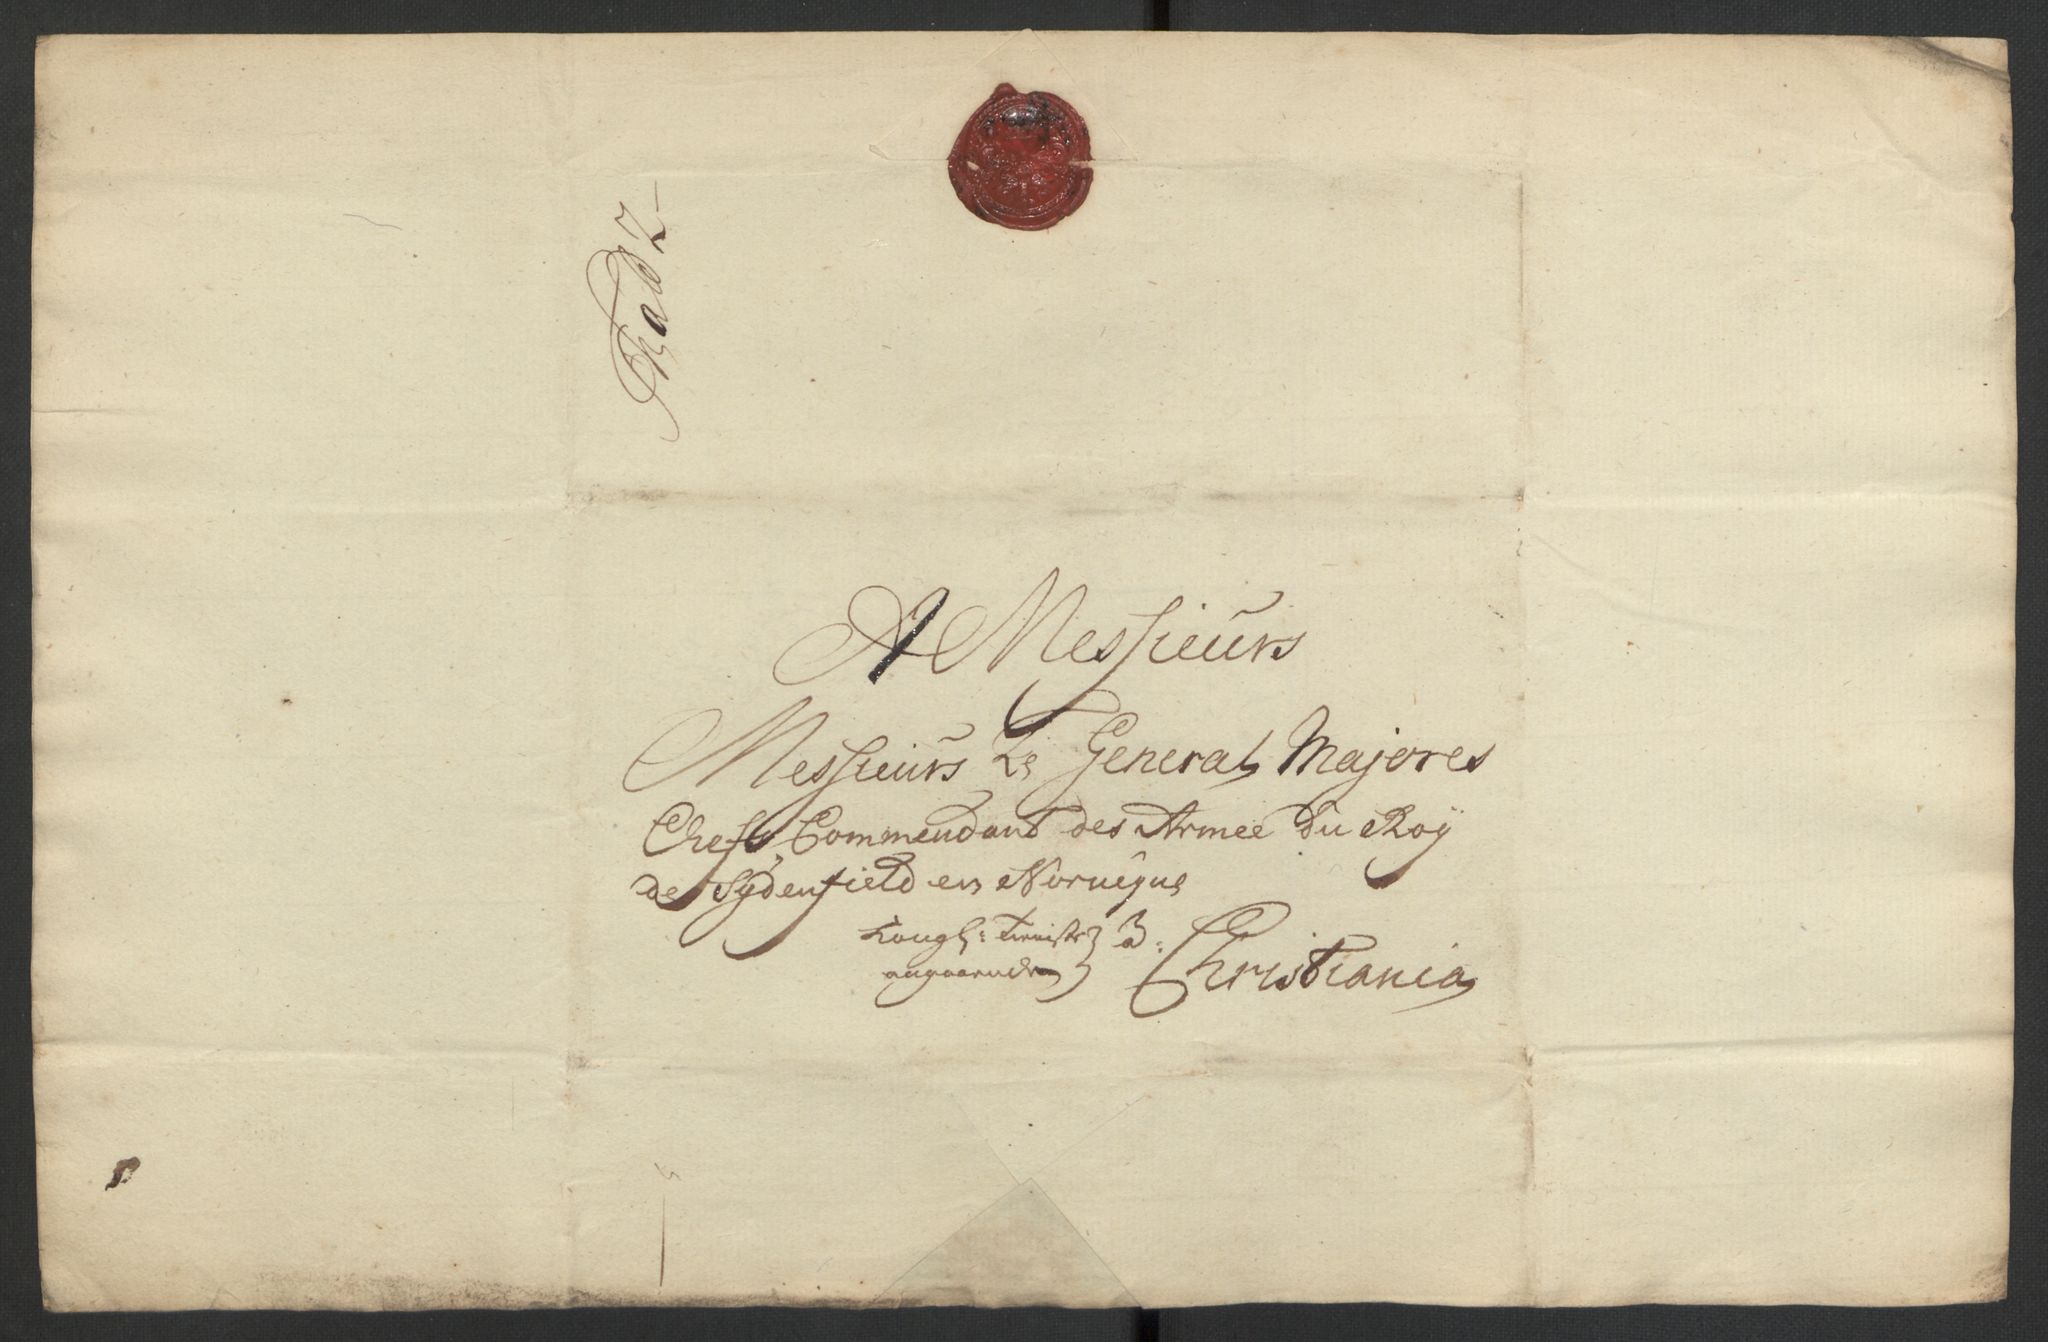 A Messieurs
Messieurs Le General Majores
Chefs Commendant des Armee Du Roÿ
de Sÿdenfield en Norwegue
Kongl: Tieniste
angaaende
a: Christiania